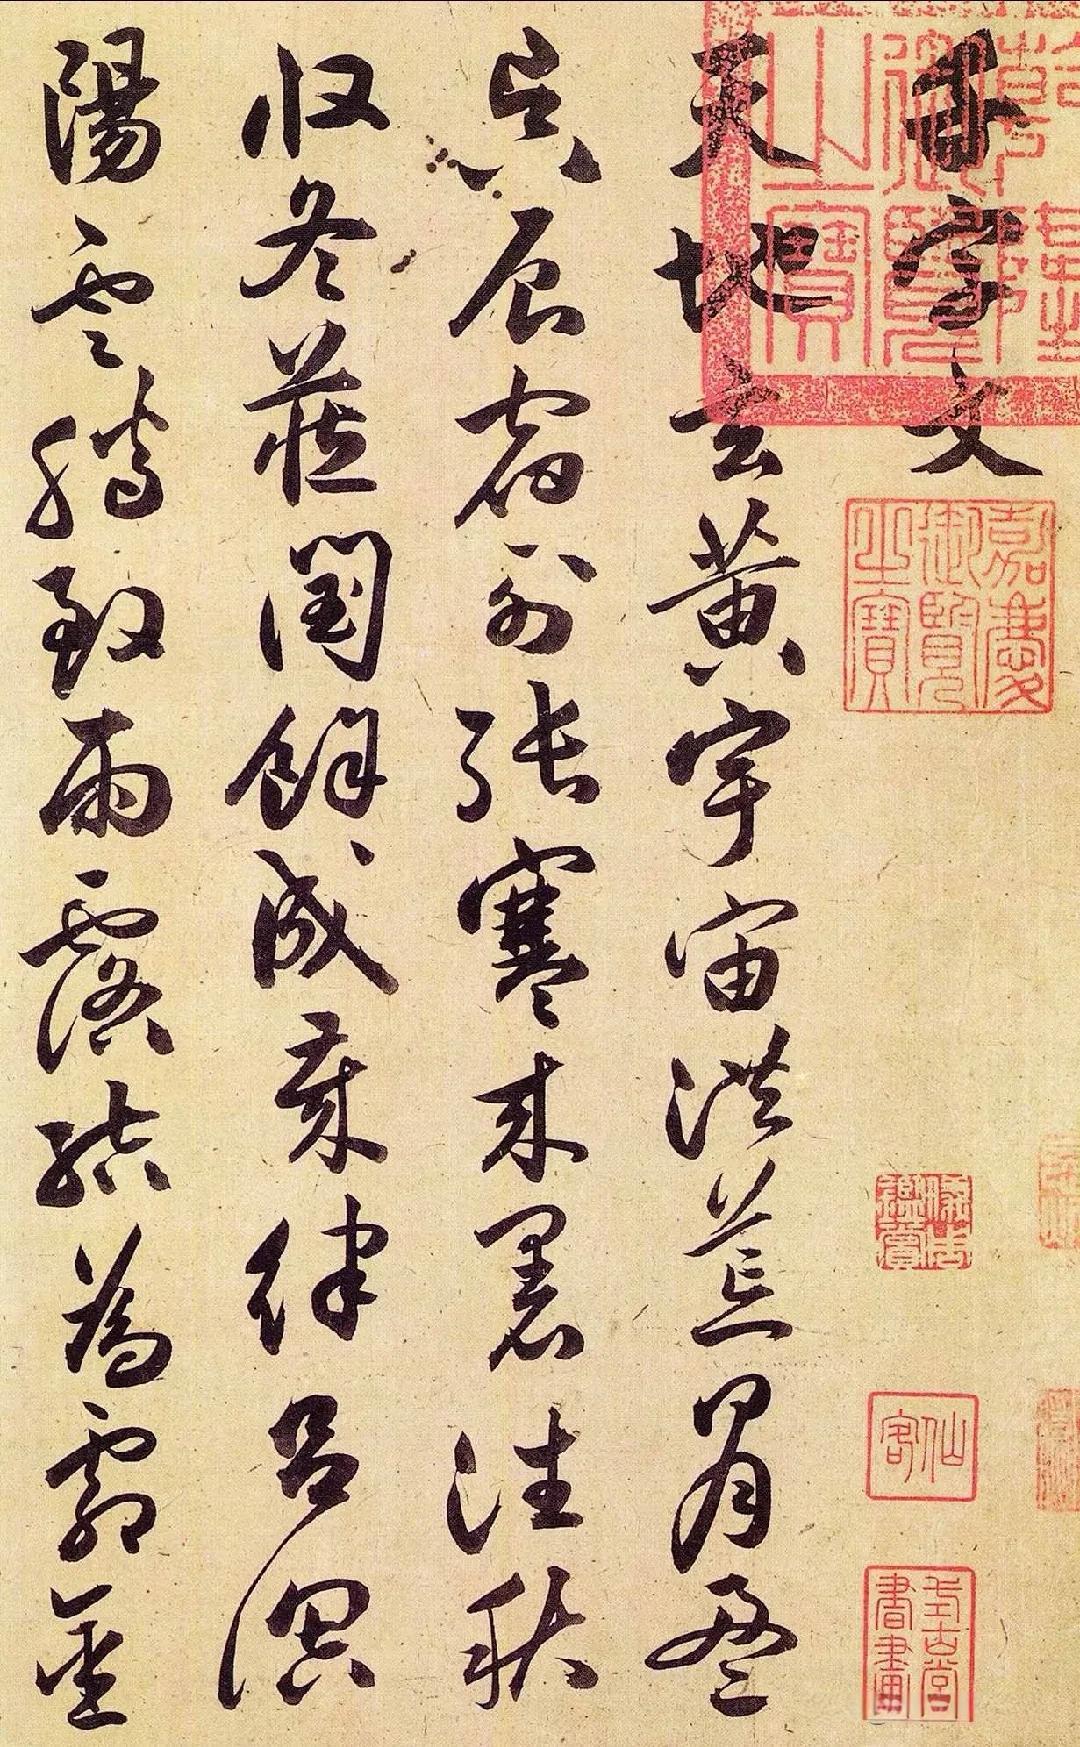 千字文
天地玄黄宇宙洪荒日月盈
昃辰宿列張寒来暑往秋
收冬藏閏餘成歲律吕調
陽雲騰致雨露結為霜金
嘉慶御覽之寶
仙客
式古堂書畫